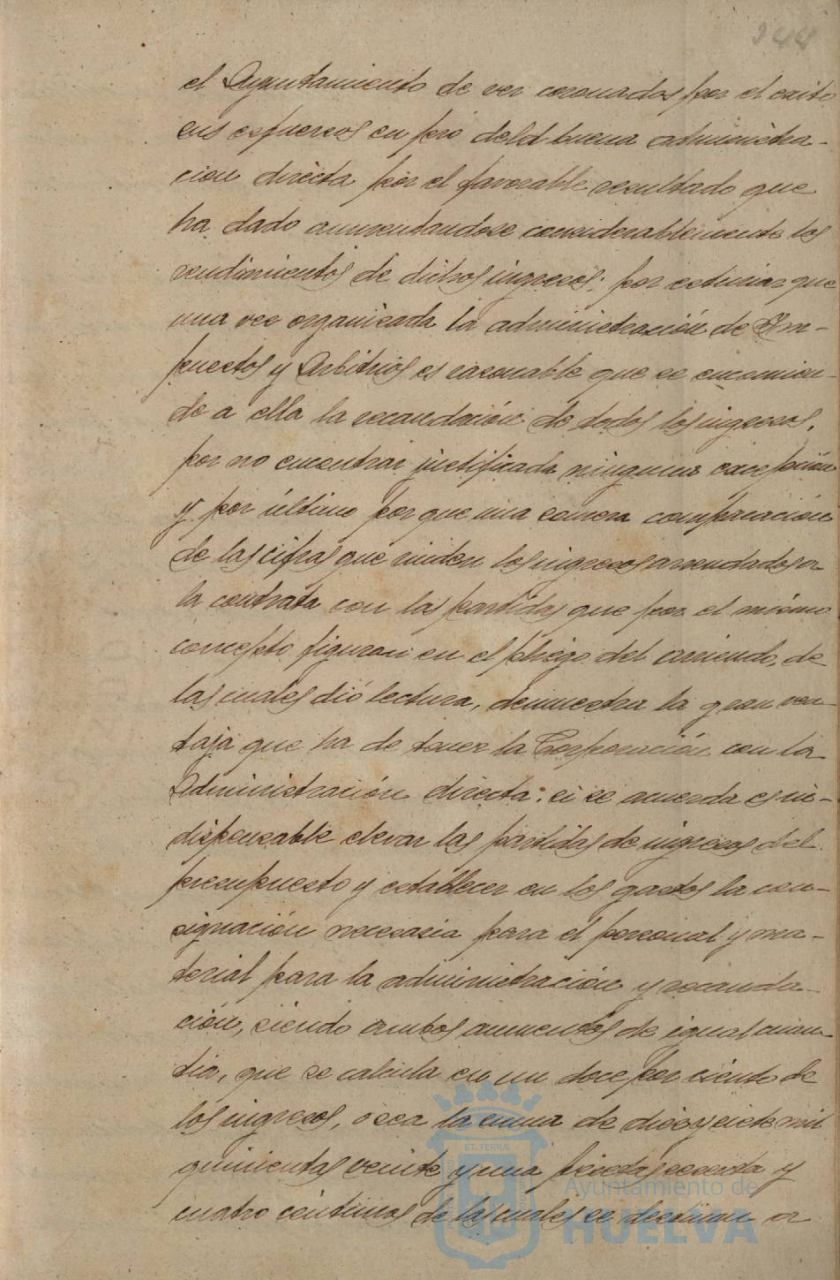 244
el Ayuntamiento de ver coronados por el exito
sus esfuerzos en pró de la buena administra-
cion directa por el favorable resultado que
ha dado aumentandose considerablemente los
rendimientos de dichos ingresos; por estimar que
una vez organizada la administración de Im-
puestos y Arbitrios es razonable que se encomien-
de a ella la recaudación de todos los ingresos,
por no encontrar justificada ninguna excepción
y por último por que una somera comparación
de las cifras que rinden los ingresos arrendados en
la contrata con las partidas que por el mismo
concepto figuran en el pliego del arriendo, de
las cuales dió lectura, demuestra la gran ven-
taja que ha de tener la Corporación con la
Administración directa: si se acuerda es in-
dispensable elevar las partidas de ingresos del
presupuesto y establecer en los gastos la con-
signación necesaria para el personal y ma-
terial para la administración y recauda-
ción, siendo ambos aumentos de igual cuan-
tia, que se calcula en un doce por ciento de
los ingresos, o sea la suma de diez y siete mil
quinientas veinte y una pesetas sesenta y
cuatro centimos de las cuales se destinan a
Ayuntamiento de
HUELVA